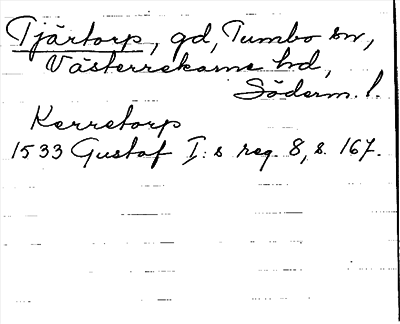 Tjärtorp, gd, Tumbo sn,
Västerrekarne hd,
Söderm. l.
Kerretorp
1533 Gustaf I:s reg. 8, s. 167.